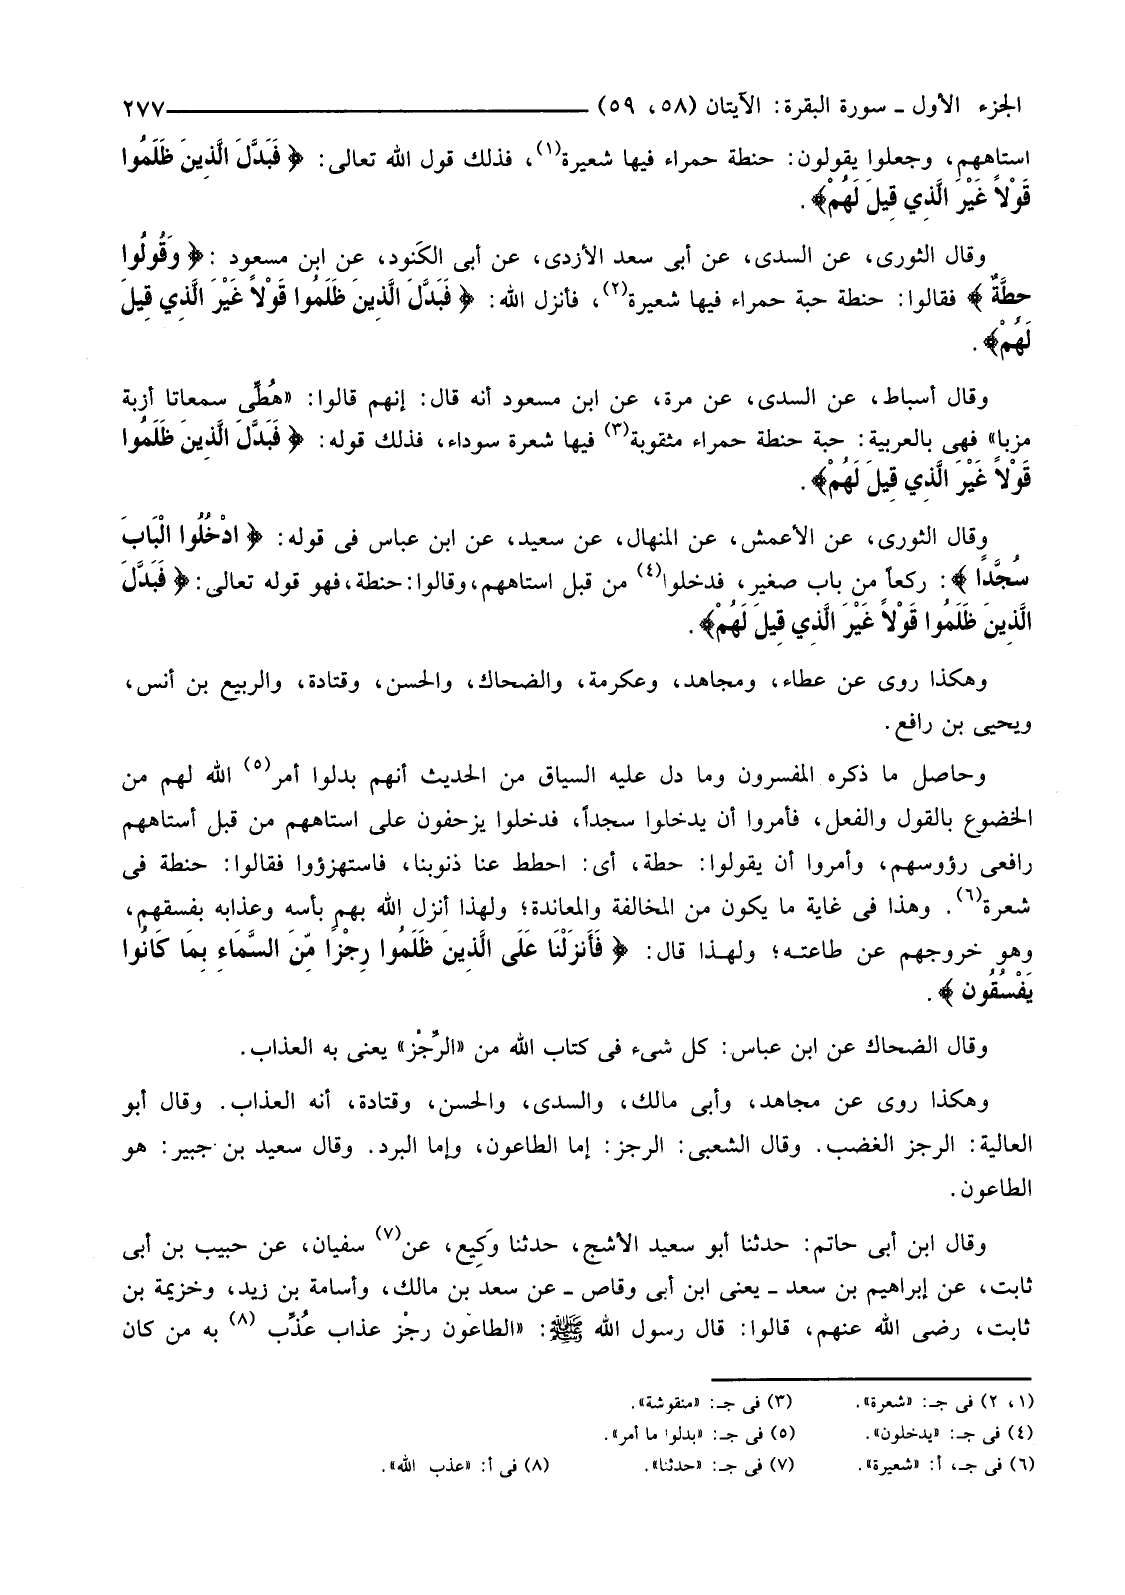 الجزء الأول ـ سورة البقرة: الآيتان (٥٨، ٥٩) ٢٧٧
استاههم، وجعلوا يقولون: حنطة حمراء فيها شعيرة(١)، فذلك قول الله تعالى: ﴿ فَبَدَّلَ الَّذِينَ ظَلَمُوا
قَوْلاً غَيْرَ الَّذِي قِيلَ لَهُمْ﴾.
وقال الثورى، عن السدى، عن أبى سعد الأزدى، عن أبى الكَنود، عن ابن مسعود :﴿ وَقُولُوا
حِطَّةٌ ﴾ فقالوا: حنطة حبة حمراء فيها شعيرة(٢)، فأنزل الله: ﴿ فَبَدَّلَ الَّذِينَ ظَلَمُوا قَوْلاً غَيْرَ الَّذِي قِيلَ
لَهُمْ﴾.
وقال أسباط، عن السدى، عن مرة، عن ابن مسعود أنه قال: إنهم قالوا: «هُطِّى سمعاتا أزبة
مزبا» فهى بالعربية: حبة حنطة حمراء مثقوبة(٣) فيها شعرة سوداء، فذلك قوله: ﴿ فَبَدَّلَ الَّذِينَ ظَلَمُوا
قَوْلاً غَيْرَ الَّذِي قِيلَ لَهُمْ﴾.
وقال الثورى، عن الأعمش، عن المنهال، عن سعيد، عن ابن عباس فى قوله: ﴿ ادْخُلُوا الْبَابَ
سُجَّدًا ﴾: ركعاً من باب صغير، فدخلوا(٤) من قبل استاههم،وقالوا:حنطة،فهو قوله تعالى:﴿ فَبَدَّلَ
الَّذِينَ ظَلَمُوا قَوْلاً غَيْرَ الَّذِي قِيلَ لَهُمْ﴾.
وهكذا روى عن عطاء، ومجاهد، وعكرمة، والضحاك، والحسن، وقتادة، والربيع بن أنس،
ويحيى بن رافع.
وحاصل ما ذكره المفسرون وما دل عليه السياق من الحديث أنهم بدلوا أمر(٥) الله لهم من
الخضوع بالقول والفعل، فأمروا أن يدخلوا سجداً، فدخلوا يزحفون على استاههم من قبل أستاههم
رافعى رؤوسهم، وأمروا أن يقولوا: حطة، أى: احطط عنا ذنوبنا، فاستهزؤوا فقالوا: حنطة فى
شعرة(٦). وهذا فى غاية ما يكون من المخالفة والمعاندة؛ ولهذا أنزل الله بهم بأسه وعذابه بفسقهم،
وهو خروجهم عن طاعته؛ ولهذا قال: ﴿ فَأَنزَلْنَا عَلَى الَّذِينَ ظَلَمُوا رِجْزًا مِّنَ السَّمَاءِ بِمَا كَانُوا
يَفْسُقُون ﴾.
وقال الضحاك عن ابن عباس: كل شىء فى كتاب الله من «الرِّجْز» يعنى به العذاب.
وهكذا روى عن مجاهد، وأبى مالك، والسدى، والحسن، وقتادة، أنه العذاب. وقال أبو
العالية: الرجز الغضب. وقال الشعبى: الرجز: إما الطاعون، وإما البرد. وقال سعيد بن جبير: هو
الطاعون.
وقال ابن أبى حاتم: حدثنا أبو سعيد الأشج، حدثنا وَكِيع، عن(٧) سفيان، عن حبيب بن أبى
ثابت، عن إبراهيم بن سعد ـ يعنى ابن أبى وقاص ـ عن سعد بن مالك، وأسامة بن زيد، وخزيمة بن
ثابت، رضى الله عنهم، قالوا: قال رسول الله ﷺ: «الطاعون رجْز عذاب عُذِّب (٨) به من كان
(١، ٢) فى جـ: «شعرة». (٣) فى جـ: «منقوشة».
(٤) فى جـ: «يدخلون». (٥) فى جـ: «بدلوا ما أمر».
(٦) فى جـ، أ: «شعيرة». (٧) فى جـ: «حدثنا». (٨) فى أ: «عذب الله».